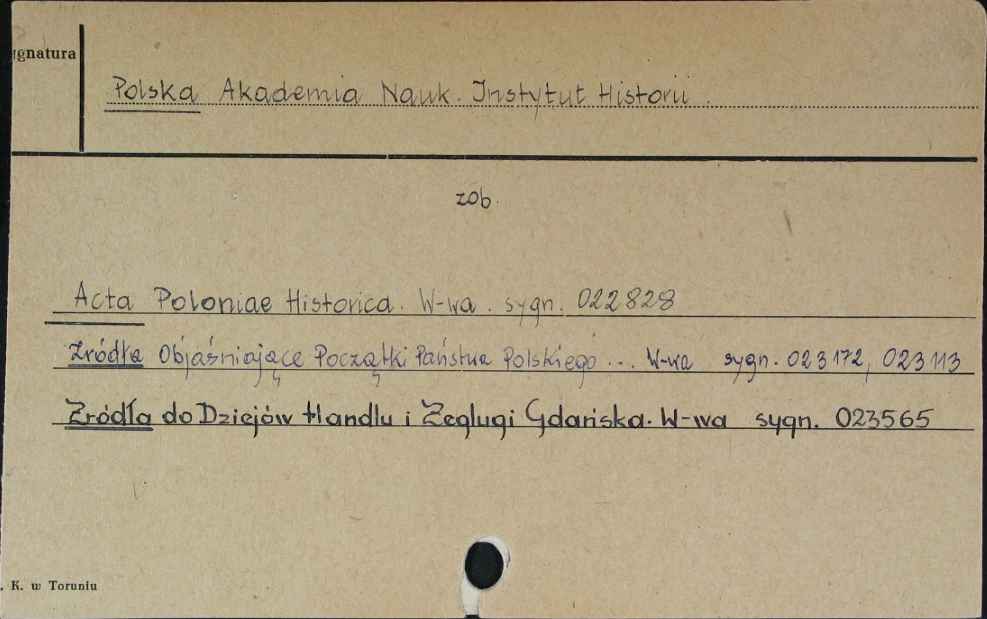 ygnatura
Polska Akademia Nauk. Instytut Historii.
zob.
Acta Poloniae Historica. W-wa. sygn. 022828
Źródła Objaśniające Początki Państwa Polskiego ... W-wa sygn. 023172, 023113
Zródła do Dziejów Handlu i Żeglugi Gdańska. W-wa sygn. 023565
. K. w Toruniu